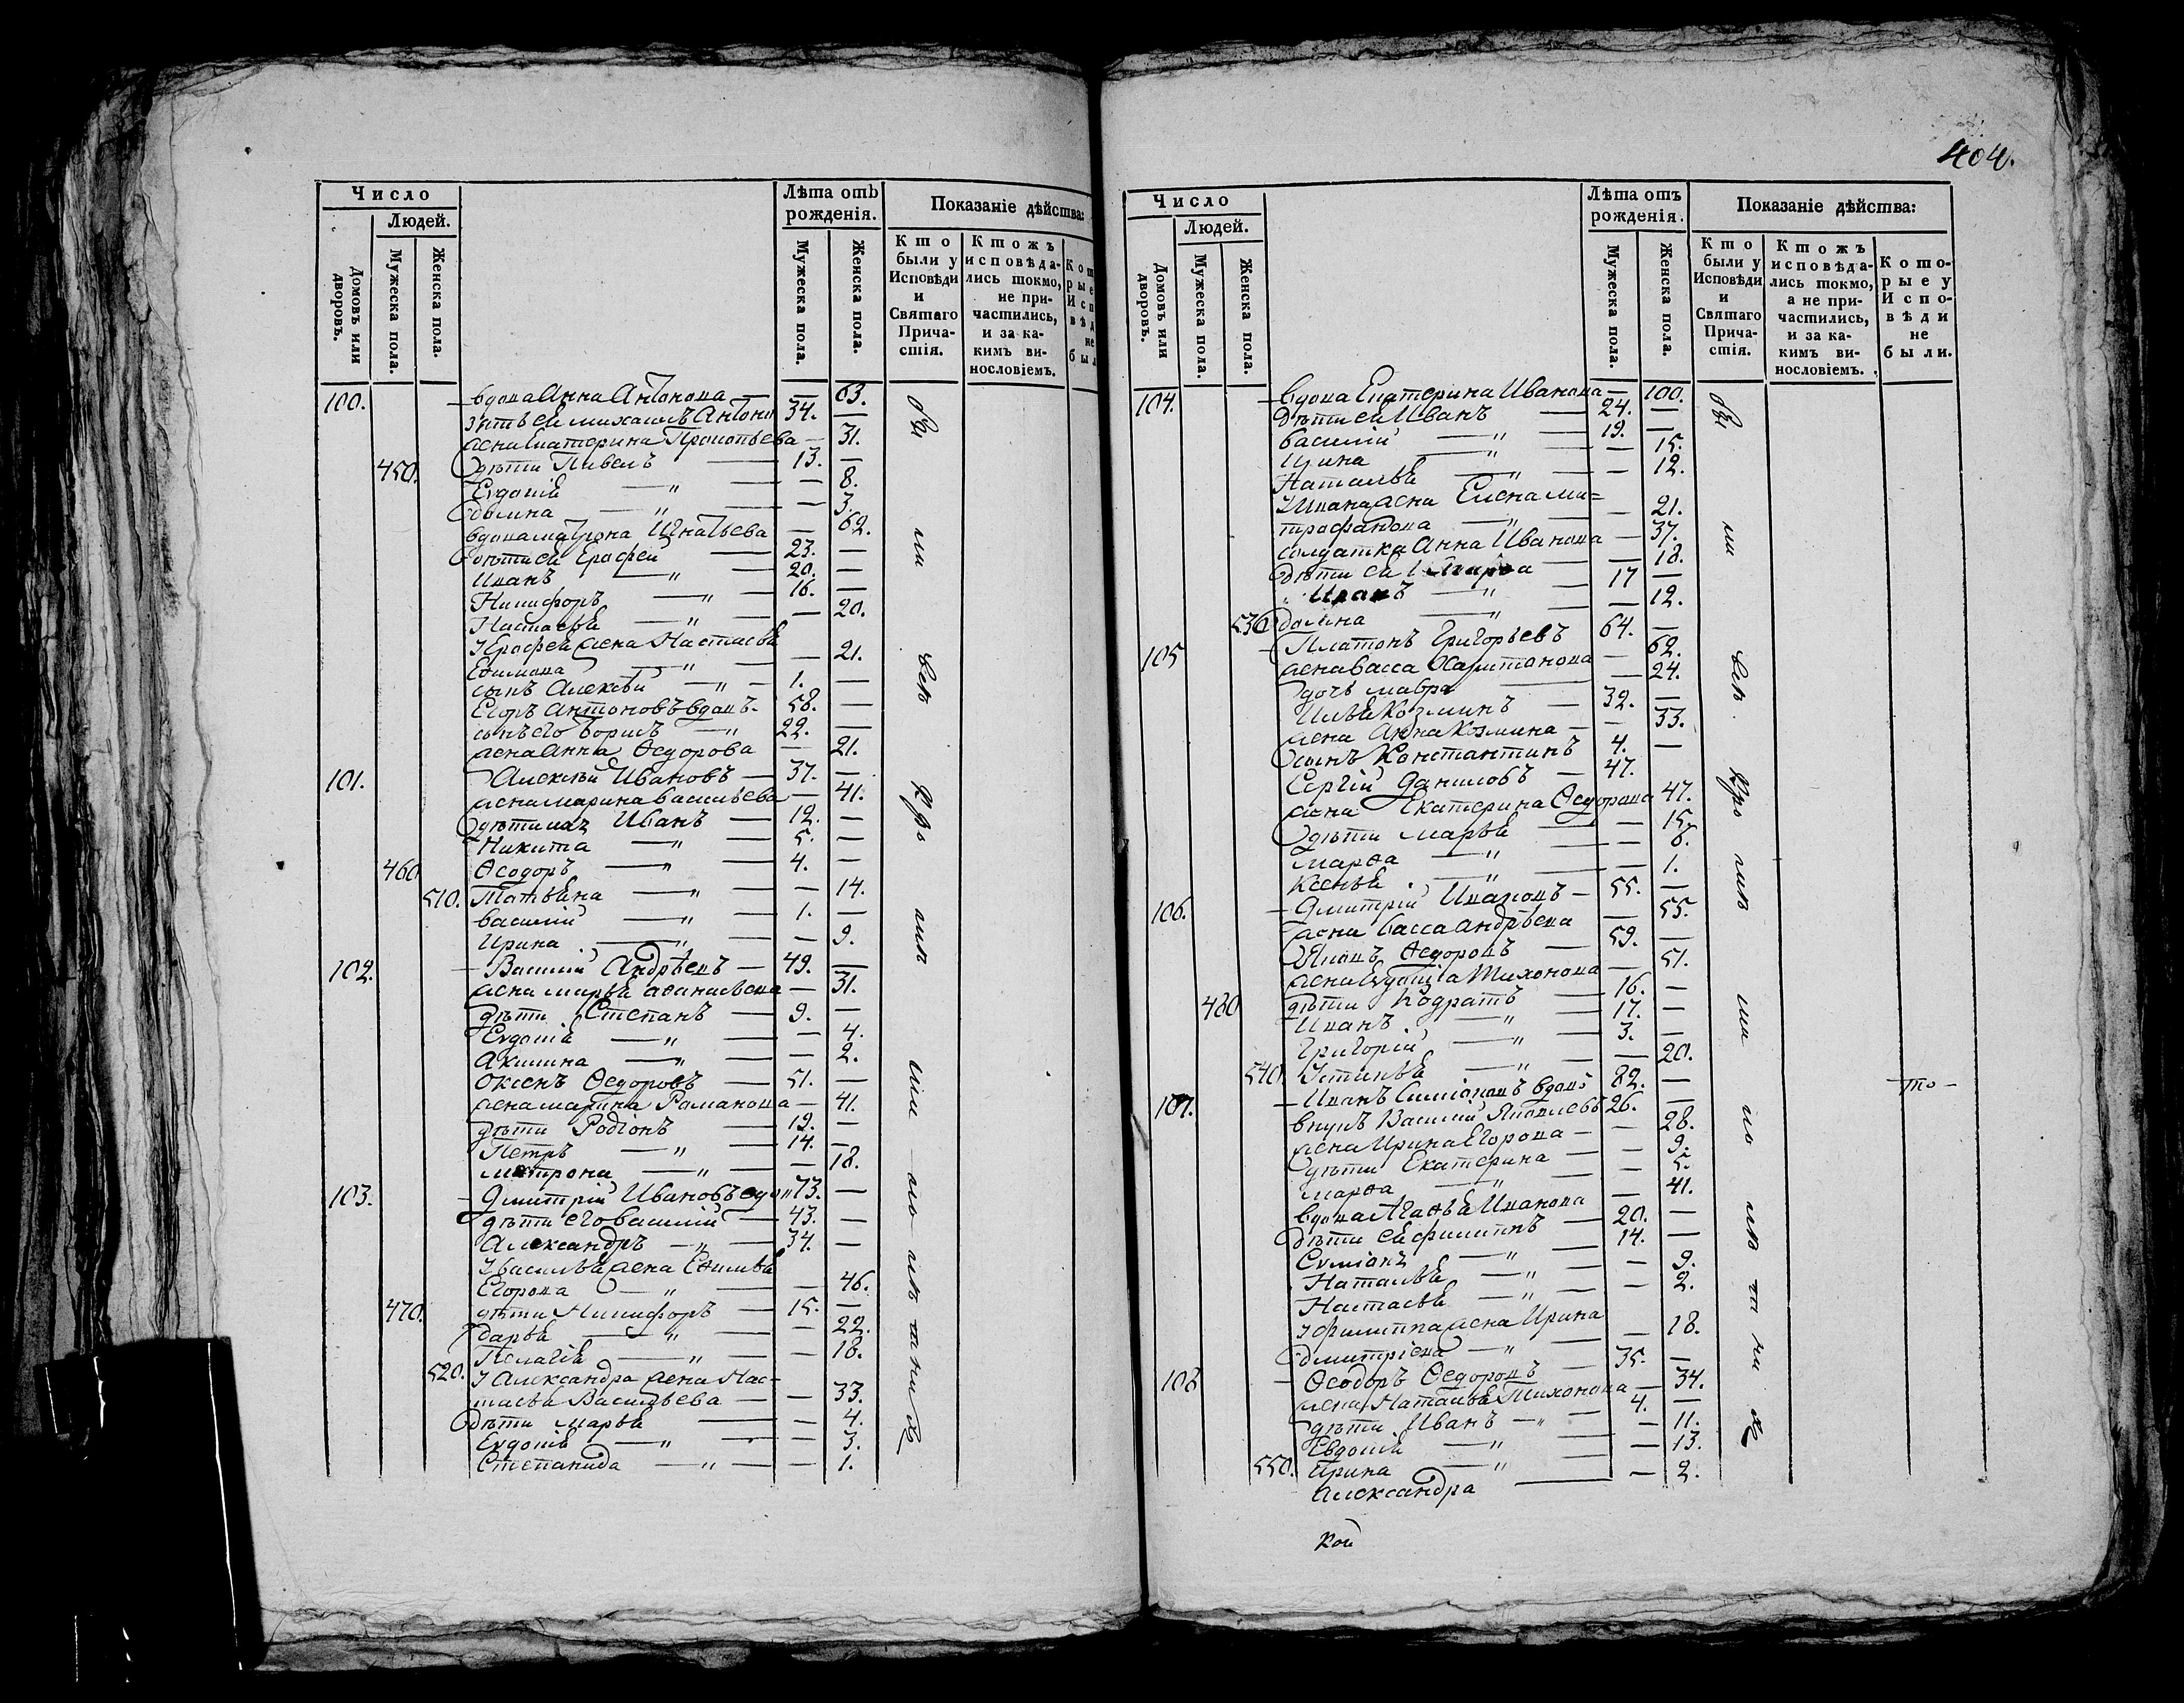 404.
Число
Людей.
Домовъ или дворовъ.
Мужеска пола.
Женска пола.
Лѣта отъ рожденія.
Мужеска пола.
Женска пола.
Показаніе дѣйства:
Кто были у Исповѣди и Святаго Причастія.
Ктожъ исповѣдались токмо, не причастились, и за какимъ винословіемъ.
100. вдова Анна Антонова — — 63.
зять ея михаилъ Антоно 34. —
жена Екатерина Прокопьева — 31.
450. дѣти Павелъ — 13. —
Евдокія — „ — — 8.
домна — „ — — 3.
вдова матрона Игнатьева — 62.
дѣти ея Ерофей — 23. —
Иванъ — „ — 20. —
Никифоръ — „ — 16. —
Настасья — „ — — 20.
У Ерофея жена Настасья
Екимова — „ — — 21.
сынъ Алексѣй — „ — 1. —
Егоръ Антоновъ вдовъ. 58. —
сынъ его Борисъ — „ 22. —
жена Анна Ѳедорова — 21.
101. Алексѣй Ивановъ — 37. —
жена марина васильева — 41.
дѣти ихъ Иванъ — 12. —
Никита — „ — 5. —
460 Ѳеодоръ — „ — 4. —
510. Татьяна — „ — — 14.
василій — „ — 1. —
Ирина — „ — — 9.
102. Василій Андрѣевъ — 49. —
жена марья аѳанасьева — 31.
дѣти Степанъ — 9. —
Евдокія — „ — — 4.
Акилина — „ — — 2.
оксенъ Ѳедоровъ — 51. —
жена марина Романова — 41.
дѣти Родіонъ — 19. —
Петръ — „ — 14. —
матрона — „ — — 18.
103. Дмитрій Ивановъ вдов 73. —
дѣти его василій — 43. —
Александръ — „ — 34. —
У василья жена
Егорова — „ — — 46.
470. дѣти Никифоръ — 15. —
дарья — „ — — 22.
Пелагія — „ — — 18.
520. У Александра жена Нас-
тасья Васильева — — 33.
дѣти марья — — 4.
Евдокія — „ — — 3.
Степанида — „ — — 1.
Число
Людей.
Домовъ или дворовъ.
Мужеска пола.
Женска пола.
Лѣта отъ рожденія.
Мужеска пола.
Женска пола.
Показаніе дѣйства:
Кто были у Исповѣди и Святаго Причастія.
Ктожъ исповѣдались токмо, а не причастились, и за какимъ винословіемъ.
Которые у Исповѣди не были.
104. вдова Екатерина Иванова — 100.
дѣти ея Иванъ — 24. —
василій — „ — 19. —
Ирина — „ — — 15.
Наталья — „ — — 12.
У Ивана жена Елена ми=
трофанова — „ — — 21.
солдатка Анна Иванова — 37.
дѣти ея — — 18.
Иванъ — „ — 17 —
530 домна — „ — — 12.
105 Платонъ Григорьевъ 64. —
жена васса Харитонова — 62.
дочь мавра — — 24.
Илья Козминъ — 32. —
жена Анна Козмина — — 33.
сынъ Константинъ 4. —
Сергій Даниловъ — 47.
жена Екатерина Ѳедорова 47.
дѣти марья — — 15.
марѳа — „ — — 8.
Ксенья — „ — — 1.
106. Дмитрій Ивановъ — 55. —
жена васса андрѣева — 55.
Ѳедоровъ — 59. —
жена Тихонова — 51.
480 дѣти Кодратъ — 16. —
Иванъ — „ — 17. —
Григорій — „ — 3. —
540. Устинья — „ — — 20.
107. Иванъ Симіоновъ вдовъ 82. — — то —
внукъ Василій Яковлевъ 26. —
жена Ирина Егорова — — 28.
дѣти Екатерина — — 9.
марѳа — „ — — 5.
вдова Агафья Иванова — 41.
дѣти ея филиппъ — 20. —
— „ — 14. —
Наталья — „ — — 9.
Настасья — „ — — 2.
У филиппа жена Ирина
дмитріева — „ — — 18.
108 Ѳеодоръ Ѳедоровъ — 35. —
жена Наталья Тихонова — 34.
дѣти Иванъ — „ — 4. —
Евдокія — „ — — 11.
550. Ирина — „ — — 13.
Александра — — 2.